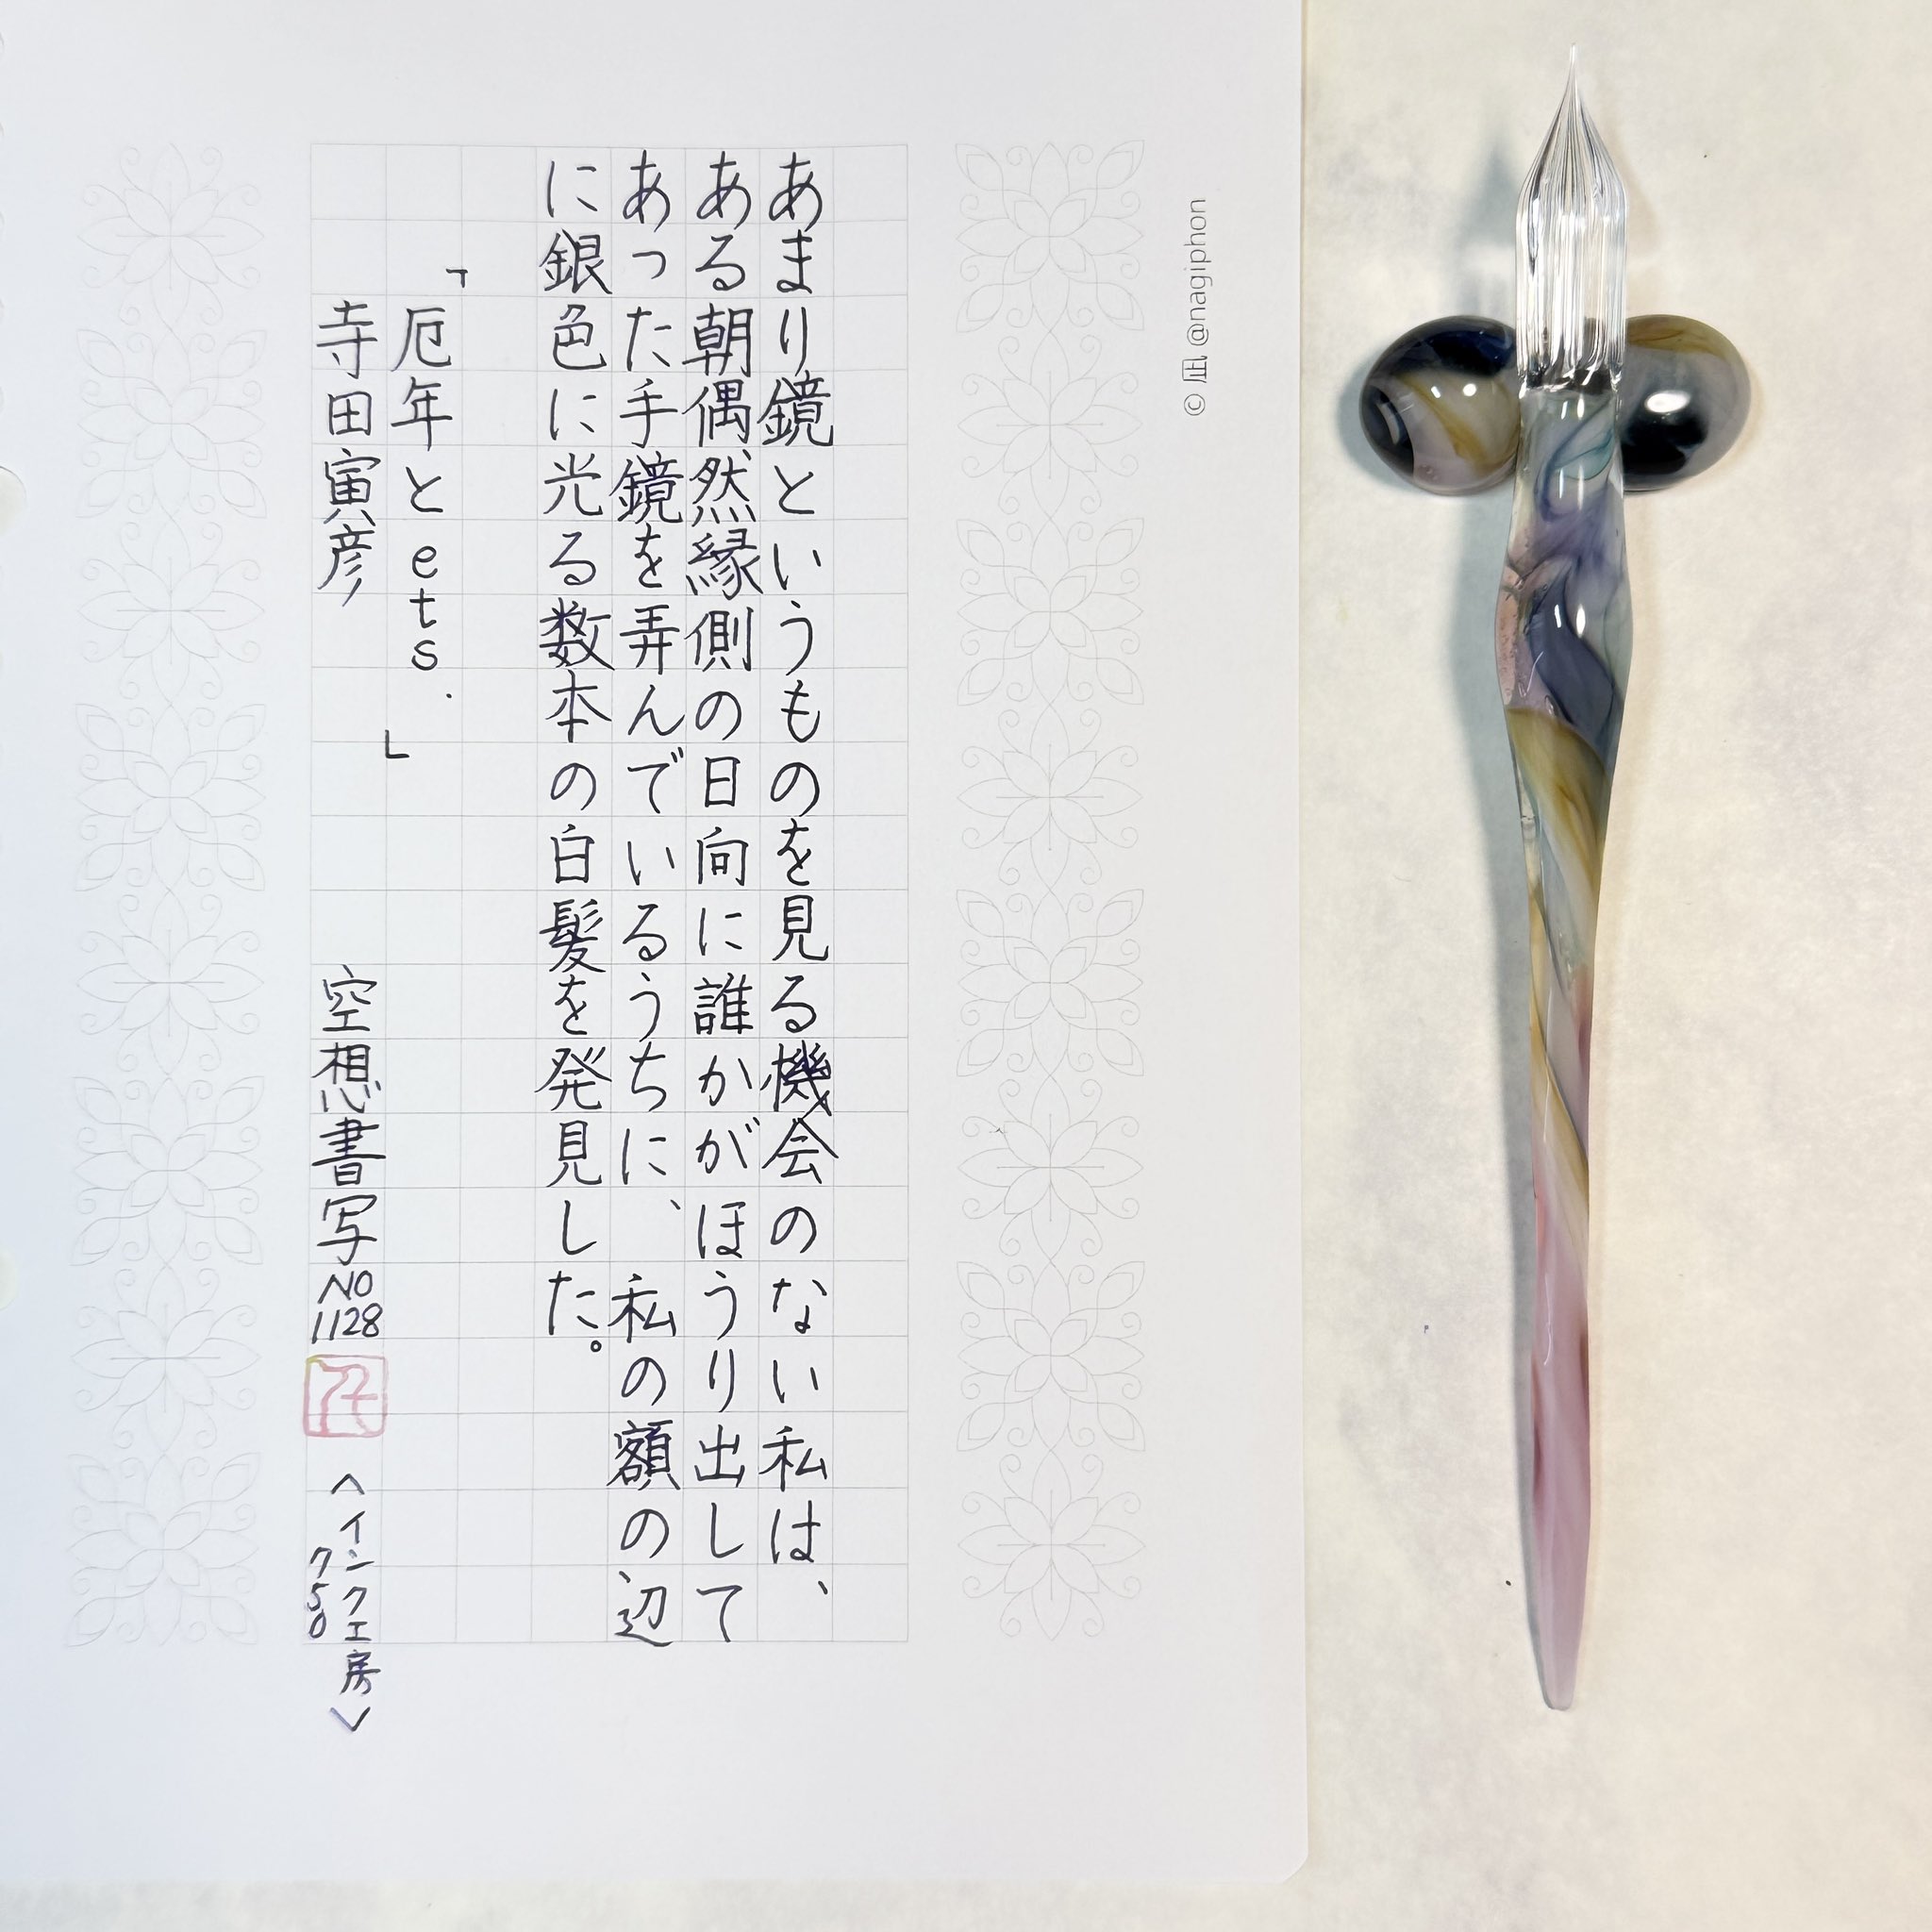 © 凪 @nagiphon
あまり鏡というものを見る機会のない私は、
ある朝偶然縁側の日向に誰かがほうり出して
あった手鏡を弄んでいるうちに、私の額の辺
に銀色に光る数本の白髪を発見した。
「厄年とets.」
寺田寅彦 空想書写NO1128 <インク工房>
750